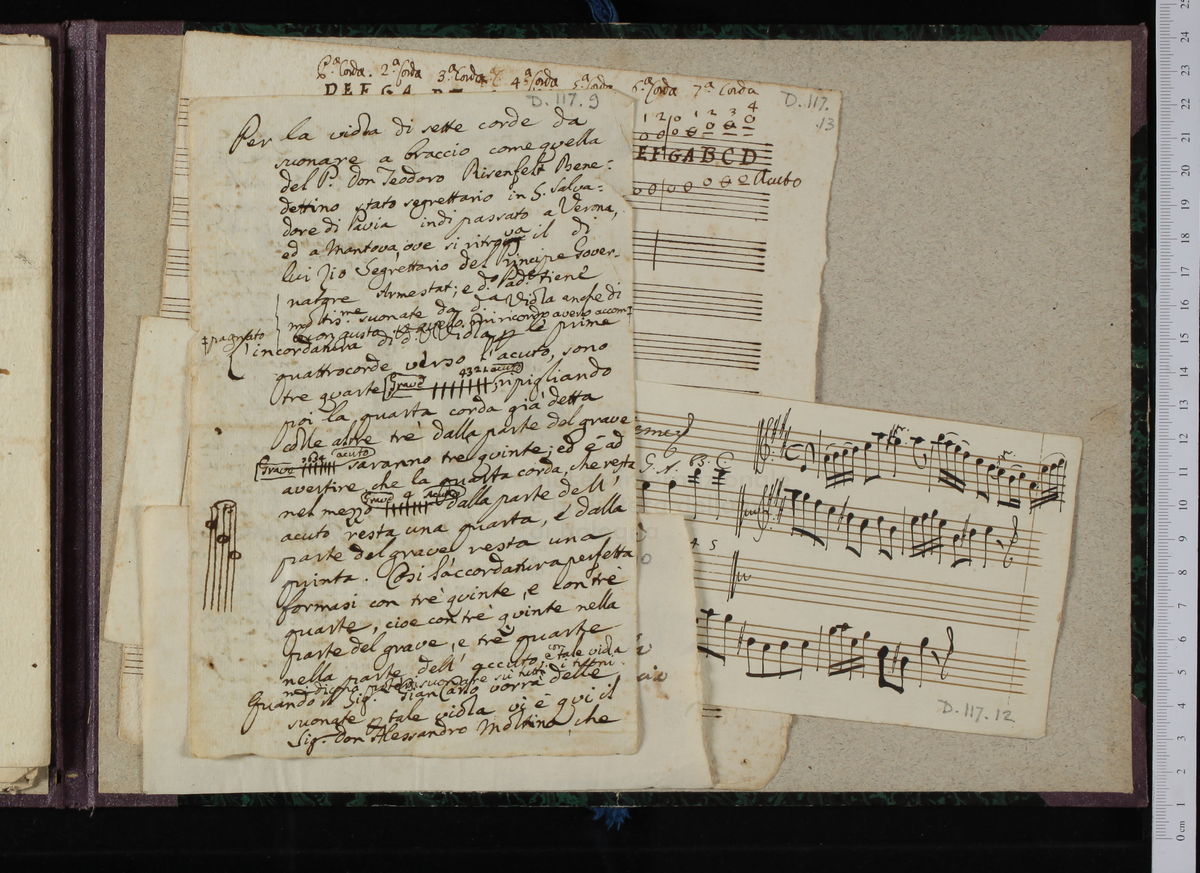 6.ª Corda. 2.ª Corda 3.ª Corda 4.ª Corda 5.ª Corda 6.ª Corda 7.ª Corda
D E F G A
D.117.9
D.117.
13
1 2 0 1 2 3 4
E F G A B C D
Acuto
Per la viola di sette corde da
suonare a braccio come quella
del P. Don Teodoro Risenfelt Bene:
dettino stato segrettario in S. Salva:
dore di Pavia indi passato a Verona,
ed a Mantova, ove si ritrova il di
lui Zio Segrettario del Principe Gover:
natore Armestat; e d.º Pad.e tiene
moltis.me suonate da d.ª Viola anche di
buon gusto
pagnato
l'incordatura di d.ª Viola le prime
quattro corde verso l'acuto, sono
tre quarte Grave 4321 acuto in pigliando
poi la quarta corda già detta
colle altre trè dalla parte del grave
Grave acuto saranno tre quinte; ed è ad
avertire, che la quarta corda, che resta
nel mezzo Grave 4 Acuto dalla parte dell'
acuto resta una quarta, e dalla
parte del grave resta una
quinta. Così l'accordatura perfetta
formasi con trè quinte, e con trè
quarte, cioè con trè quinte nella
parte del grave, e trè quarte
nella parte dell' accuto, e con tale viola
suonare su tutti i tuoni.
Quando il Sig. Gian Carlo vorrà delle
suonate p tale viola vi è qui il
Sig. Don Alessandro Moltino, che
G. A. B. C
4 5
D.117.12